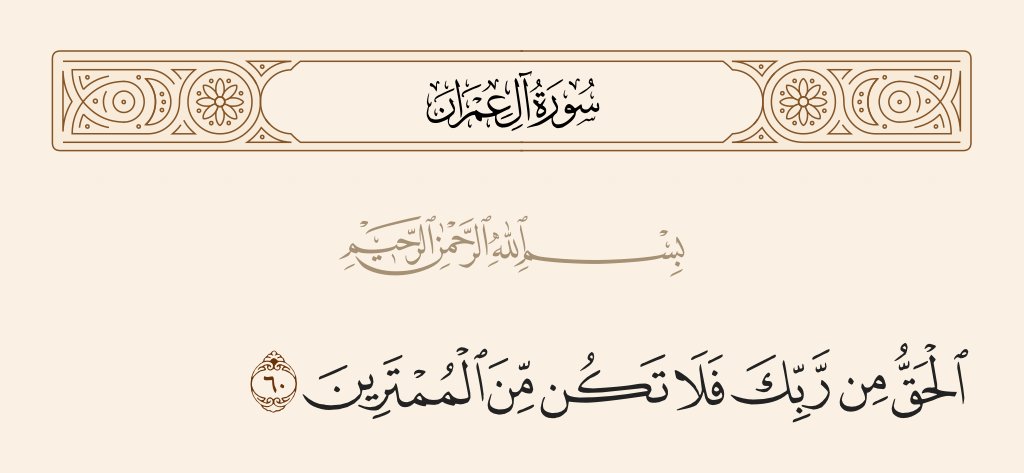 سُورَةُ آلِ عِمْرَانَ
بِسْمِ ٱللَّهِ ٱلرَّحْمَٰنِ ٱلرَّحِيمِ
ٱلْحَقُّ مِن رَّبِّكَ فَلَا تَكُن مِّنَ ٱلْمُمْتَرِينَ ٦٠